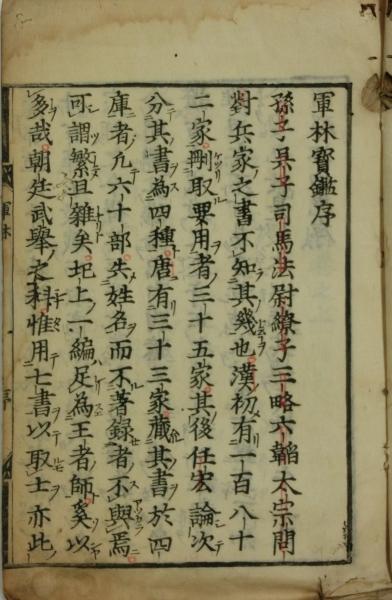 軍林寶鑑序
孫子吳子司馬法尉繚子三略六韜太宗問
對兵家之書不知其幾也漢初有一百八十
二家刪取要用者三十五家其後任宏論次
分其書為四種唐有三十三家藏其書於四
庫者九六十部失姓名而不著錄者不與焉
可謂繁且雜矣圯上一編足為王者師奚以
多哉朝廷武舉之科惟用七書以取士亦此
軍林
序